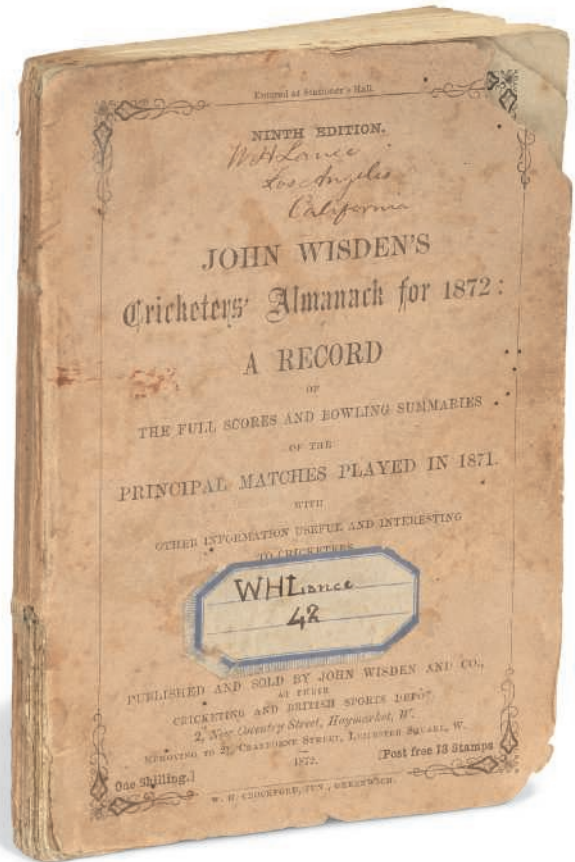 Entered at Stationer's Hall.
NINTH EDITION.
W H Lance
Los Angeles
California
JOHN WISDEN'S
Cricketers' Almanack for 1872:
A RECORD
OF
THE FULL SCORES AND BOWLING SUMMARIES
OF THE
PRINCIPAL MATCHES PLAYED IN 1871.
WITH
OTHER INFORMATION USEFUL AND INTERESTING
TO CRICKETERS
WHLance
42
PUBLISHED AND SOLD BY JOHN WISDEN AND CO.,
AT THEIR
CRICKETING AND BRITISH SPORTS DEPÔT
2, New Coventry Street, Haymarket, W.
REMOVING TO 21, CRANBORNE STREET, LEICESTER SQUARE, W.
1872.
One Shilling.]
[Post free 13 Stamps
W. H. CROCKFORD, JUN., GREENWICH.